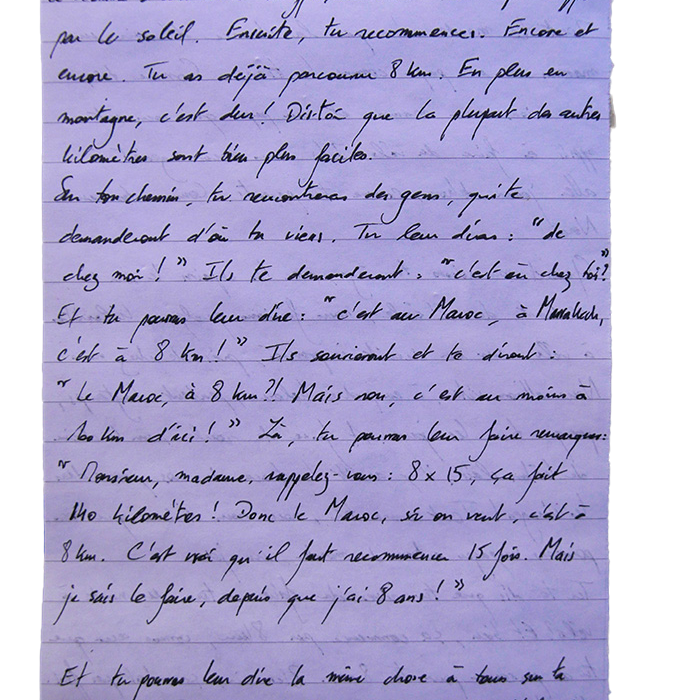 par le soleil. Ensuite, tu recommences. Encore et
encore. Tu as déjà parcouru 8 km. En plus en
montagne, c'est dur ! Dis-toi que la plupart des autres
kilomètres sont bien plus faciles.
Sur ton chemin, tu rencontreras des gens, qui te
demanderont d'où tu viens. Tu leur diras : "de
chez moi ! " Ils te demanderont : "c'est où chez toi?"
Et tu pourras leur dire : "c'est au Maroc, à Marrakech,
c'est à 8 km ! " Ils souriront et te diront :
" Le Maroc, à 8 km ?! Mais non, c'est au moins à
100 km d'ici ! " Là, tu pourras leur faire remarquer:
" Monsieur, madame, rappelez-vous : 8 x 15, ça fait
140 kilomètres ! Donc le Maroc, si on veut, c'est à
8 km. C'est vrai qu'il faut recommencer 15 fois. Mais
je sais le faire, depuis que j'ai 8 ans ! "
Et tu pourras leur dire la même chose à tous sur ta